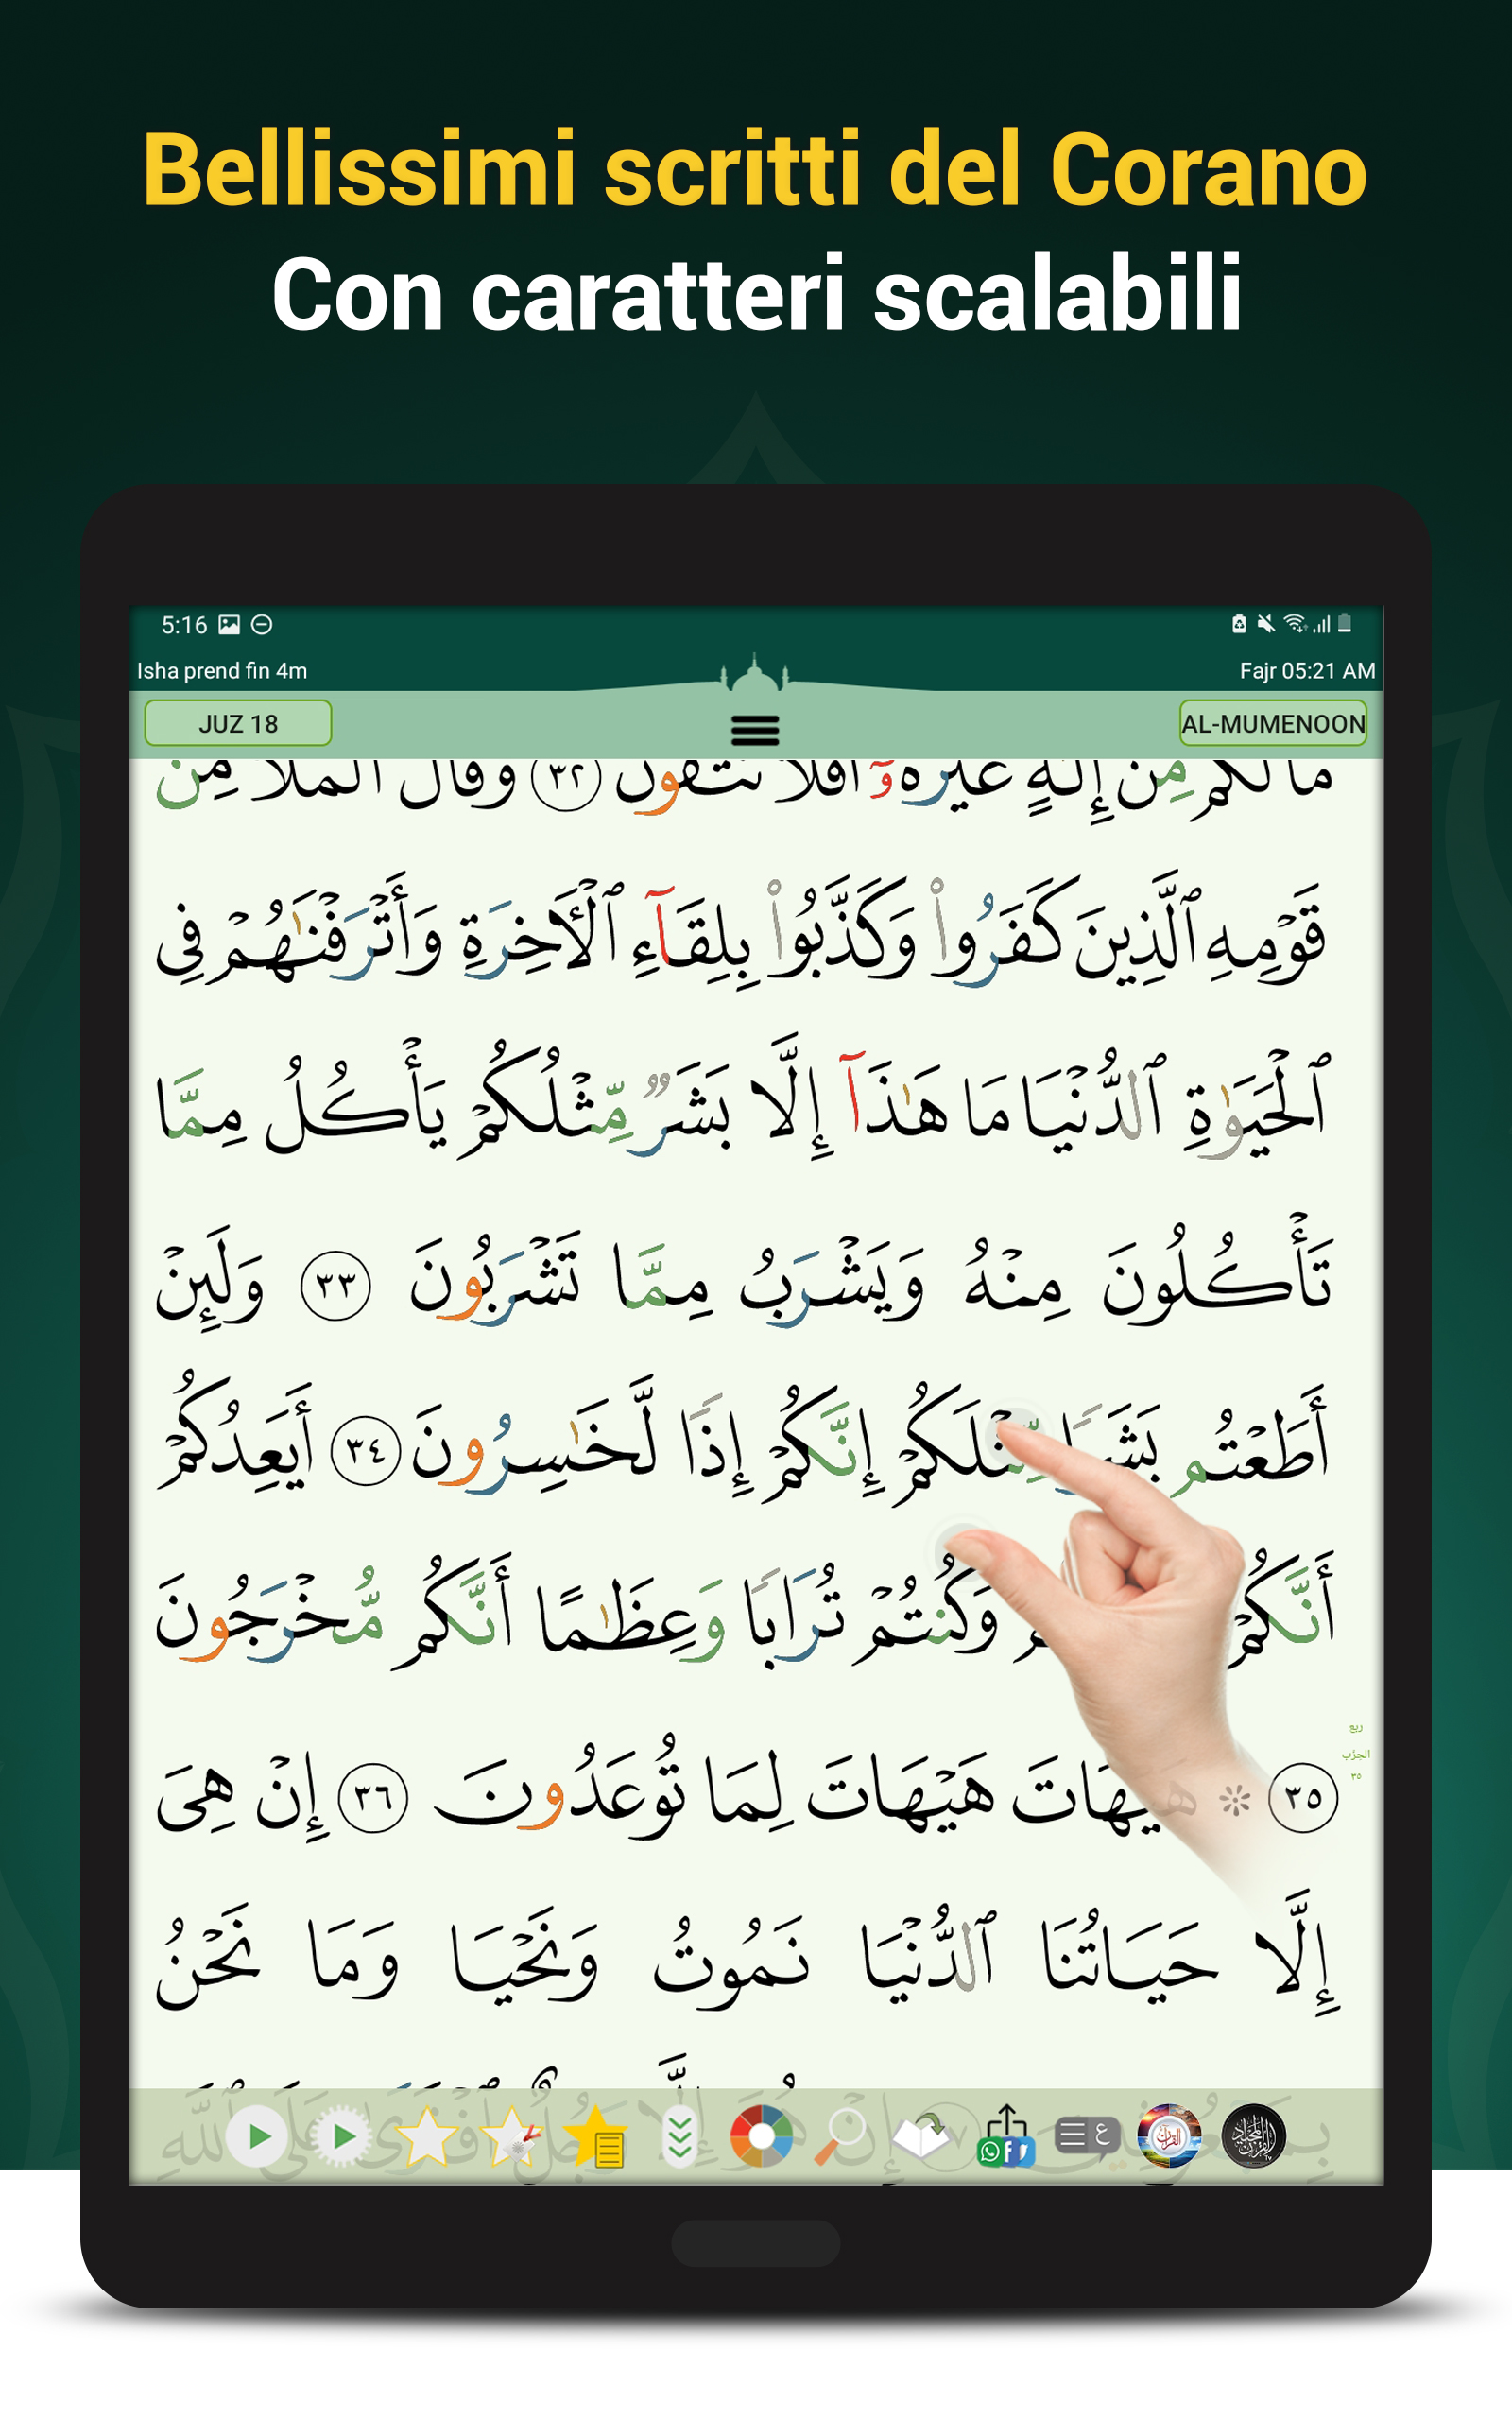 Bellissimi scritti del Corano
Con caratteri scalabili
5:16
Isha prend fin 4m
Fajr 05:21 AM
JUZ 18
AL-MUMENOON
مَا لَكُم مِّنْ إِلَـٰهٍ غَيْرُهُۥٓ أَفَلَا تَتَّقُونَ ٣٢ وَقَالَ ٱلْمَلَأُ مِن
قَوْمِهِ ٱلَّذِينَ كَفَرُوا۟ وَكَذَّبُوا۟ بِلِقَآءِ ٱلْأَخِرَةِ وَأَتْرَفْنَـٰهُمْ فِى
ٱلْحَيَوٰةِ ٱلدُّنْيَا مَا هَـٰذَآ إِلَّا بَشَرٌ مِّثْلُكُمْ يَأْكُلُ مِمَّا
تَأْكُلُونَ مِنْهُ وَيَشْرَبُ مِمَّا تَشْرَبُونَ ٣٣ وَلَئِنْ
أَطَعْتُم بَشَرًا مِّثْلَكُمْ إِنَّكُمْ إِذًا لَّخَـٰسِرُونَ ٣٤ أَيَعِدُكُمْ
أَنَّكُمْ وَكُنتُمْ تُرَابًا وَعِظَـٰمًا أَنَّكُم مُّخْرَجُونَ
ربع
الحزب
٣٥
٣٥ ۞ هَيْهَاتَ هَيْهَاتَ لِمَا تُوعَدُونَ ٣٦ إِنْ هِىَ
إِلَّا حَيَاتُنَا ٱلدُّنْيَا نَمُوتُ وَنَحْيَا وَمَا نَحْنُ